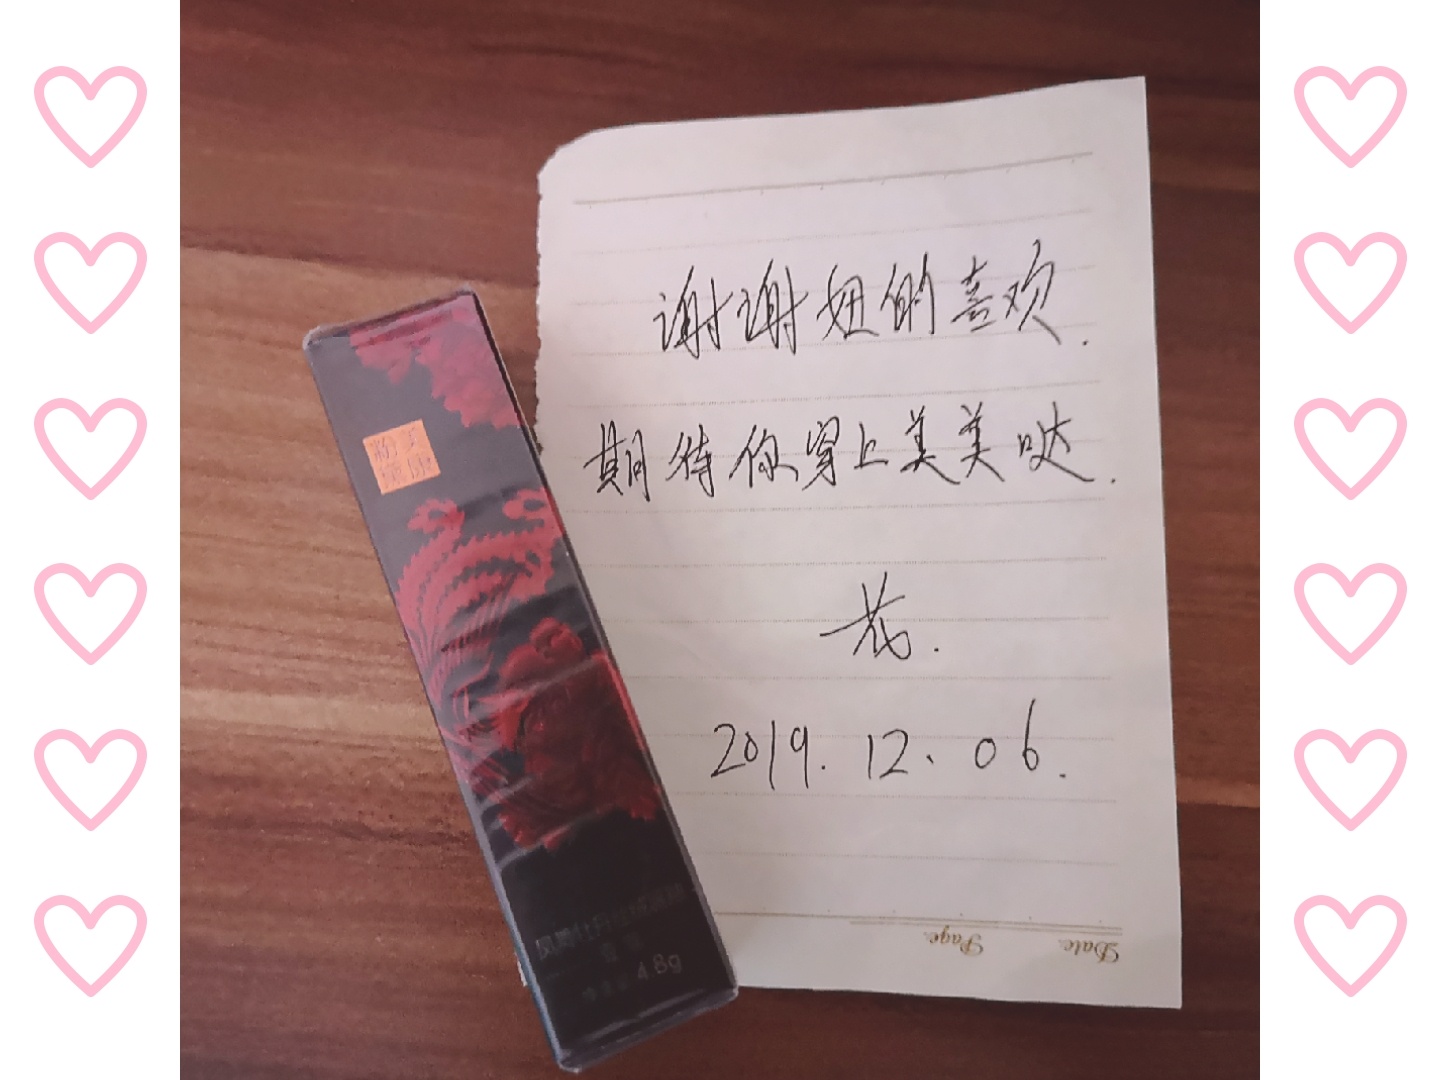 谢谢妞的喜欢.
期待你穿上美美哒.
2019.12.06.
Date.
Page.
4.8g